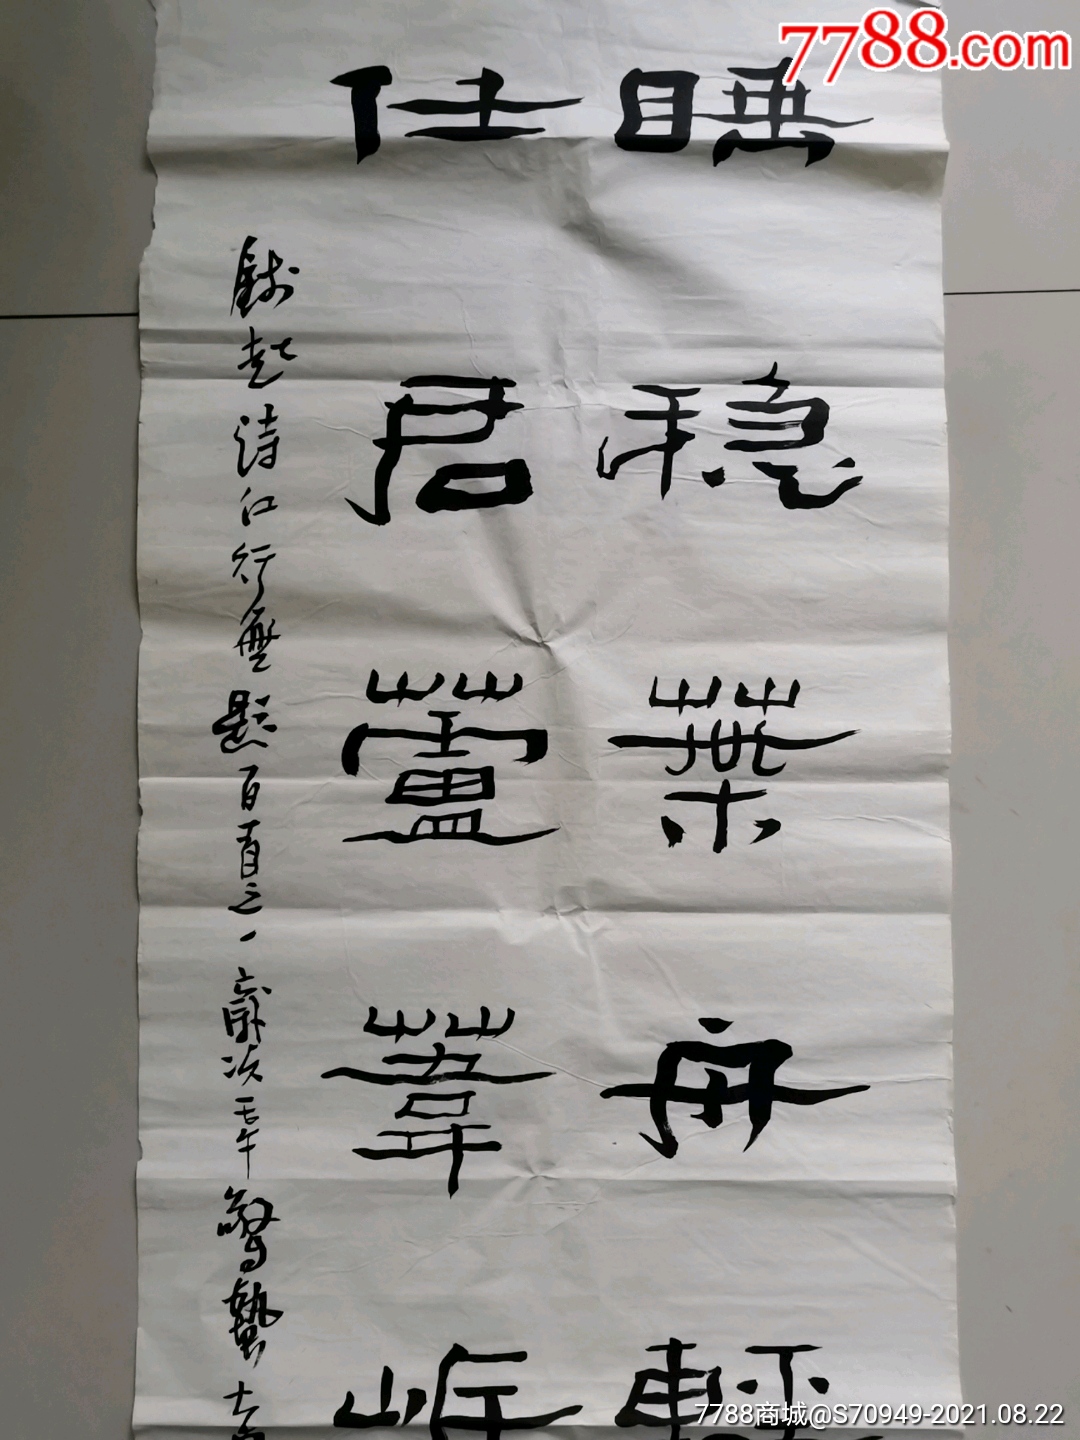 7788.com
睡稳葉舟輕
任君蘆葦岸
錢起詩江行無題百首之一歲次壬午驚蟄
7788商城@S70949-2021.08.22